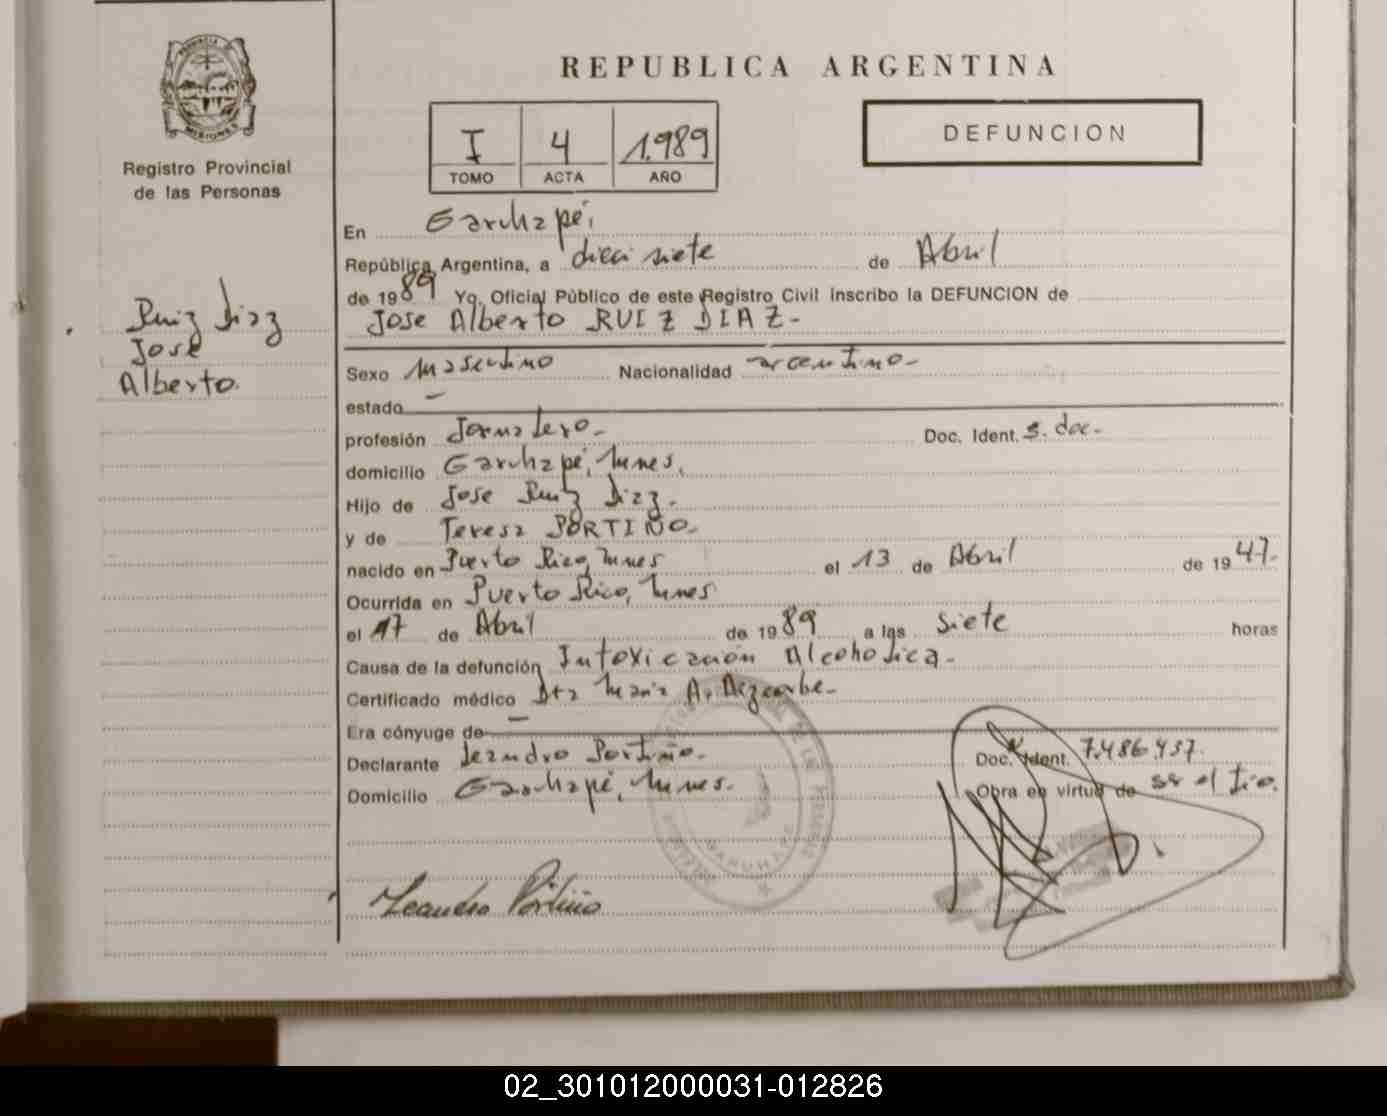 REPUBLICA ARGENTINA
PROVINCIA
MISIONES
Registro Provincial
de las Personas
I 4 1.989
TOMO ACTA AÑO
DEFUNCION
En Garuhapé,
República Argentina, a dieci siete de Abril
de 1989 Yo, Oficial Público de este Registro Civil inscribo la DEFUNCION de
Jose Alberto RUIZ DIAZ-
Ruiz Diaz
José
Alberto.
Sexo Masculino Nacionalidad argentino-
estado -
profesión Jornalero- Doc. Ident. s. doc-
domicilio Garuhapé, Mnes.
Hijo de Jose Ruiz Diaz-
y de Teresa PORTIÑO-
nacido en Puerto Rico, Mnes el 13 de Abril de 1947-
Ocurrida en Puerto Rico, Mnes
el 17 de Abril de 1989 a las siete horas
Causa de la defunción Intoxicación Alcoholica-
Certificado médico Dra Maria A.
Era cónyuge de -
Declarante Leandro Portiño- Doc. Ident. 7.486.437.
Domicilio Garuhapé, Mnes. Obra en virtud de ser el tio.
GARUHAPE
Leandro Portiño
02_301012000031-012826